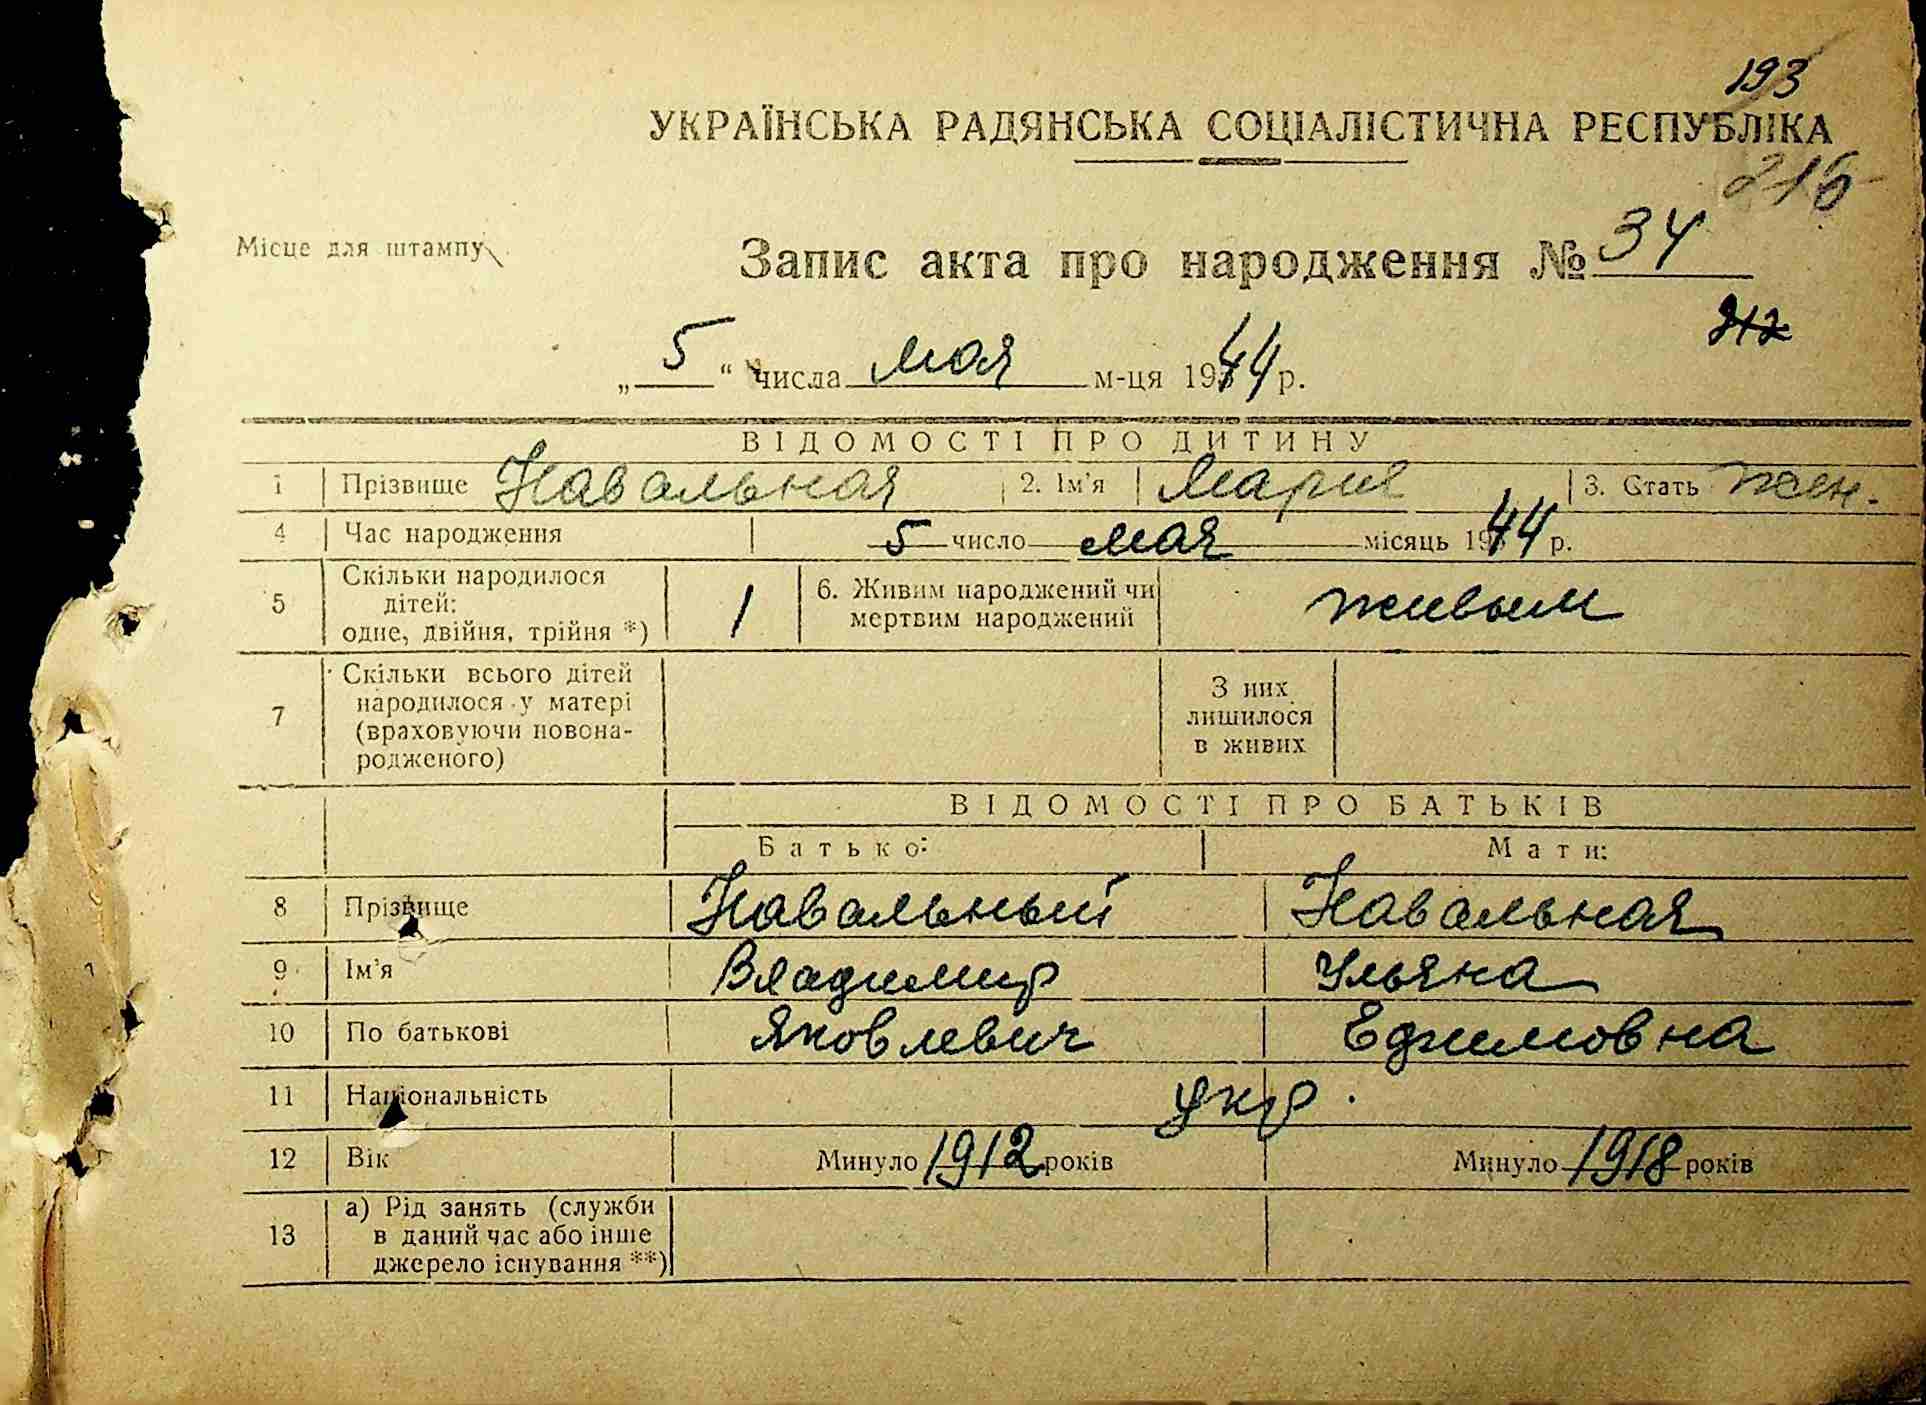 193
УКРАЇНСЬКА РАДЯНСЬКА СОЦІАЛІСТИЧНА РЕСПУБЛІКА
216
Місце для штампу
Запис акта про народження № 34
212
„ 5 “ числа мая м-ця 1944 р.
ВІДОМОСТІ ПРО ДИТИНУ
1 Прізвище Навальная 2. Ім'я Мария 3. Стать жен.
4 Час народження 5 число мая місяць 1944 р.
5 Скільки народилося дітей: одне, двійня, трійня *) 1 6. Живим народжений чи мертвим народжений живым
7 Скільки всього дітей народилося у матері (враховуючи новонародженого) З них лишилося в живих
ВІДОМОСТІ ПРО БАТЬКІВ
Батько: Мати:
8 Прізвище Навальный Навальная
9 Ім'я Владимир Ульяна
10 По батькові Яковлевич Ефимовна
11 Національність укр.
12 Вік Минуло 1912 років Минуло 1918 років
13 а) Рід занять (служби в даний час або інше джерело існування **)